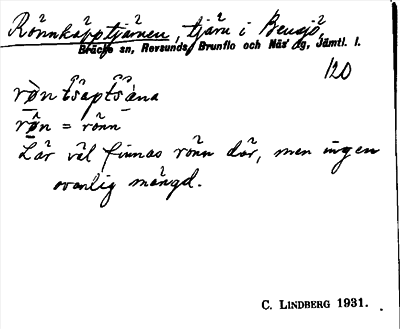 Rönnkäpptjärnen, tjärn i Bensjö,
Bräcke sn, Revsunds, Brunflo och Näs tg, Jämtl. l.
120
røn = rönn
Lär väl finnas rönn där, men ingen
ovanlig mängd.
C. LINDBERG 1931.